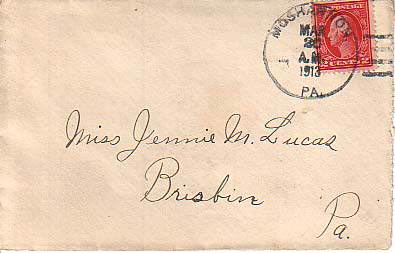 MOSHANNON
A.M.
1913
PA.
2 CENTS 2
Miss Jennie M. Lucas
Brisbin
Pa.